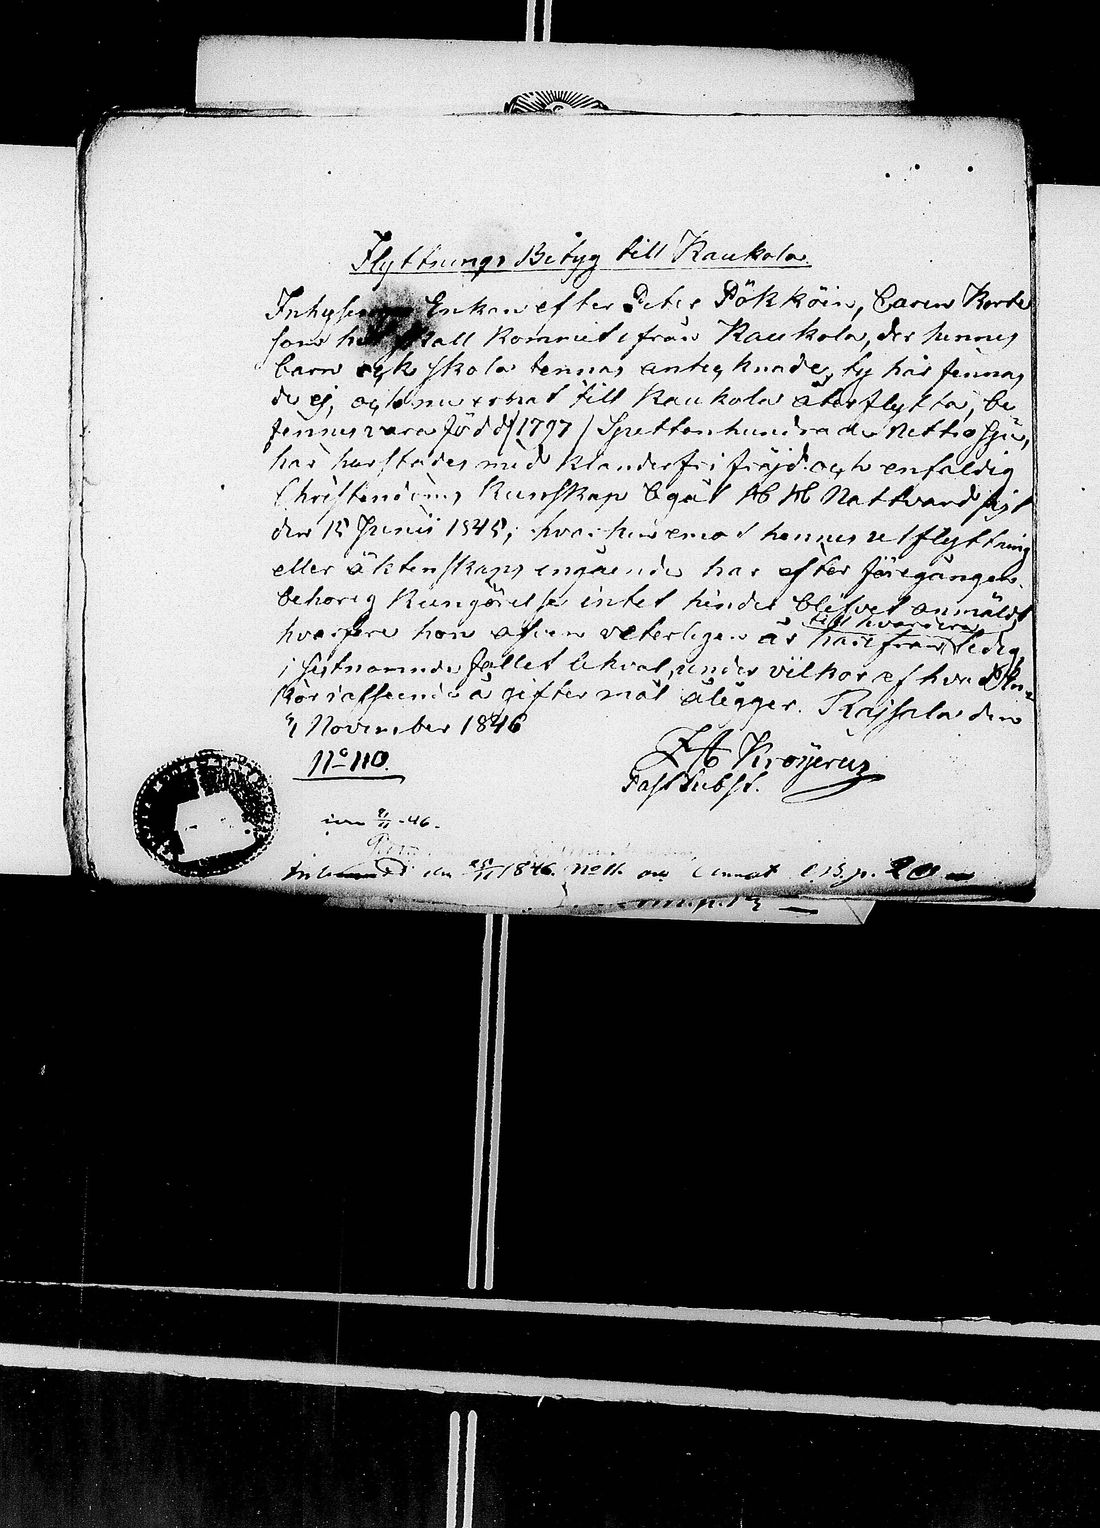 Flyttnings Betyg till Kaukola
Inhyses Enkan efter Peter Pökköin, Caren Korte
som hit skall kommit ifrån Kaukola, der hennes
barn ock skola finnas anteknade, ty här finnas
de ej, och nu ernat till Kaukola återflytta, be
finnes vara född /1797/ Sjuttonhundrade Nettiosju,
har härstädes med klanderfri fräjd och enfaldig
Christendoms Kunskap begåt H H Nattvard sist
den 15 Junii 1845; hvarjemte emot hennes utflyttning
eller äktenskaps ingående här efter föregången
behörig Kungörelse intet hinder blifvet anmäldt
hvarföre hon afven veterligen är härifrån ledig
till hvardera
i sistnämnde fallet likväl under vilkor af hvad
å giftermål ålegger. Räisälä den
9 November 1846
No 110.
Kröijerus
Past Subst.
46.
den 25/11 1846. No 11. p. 20